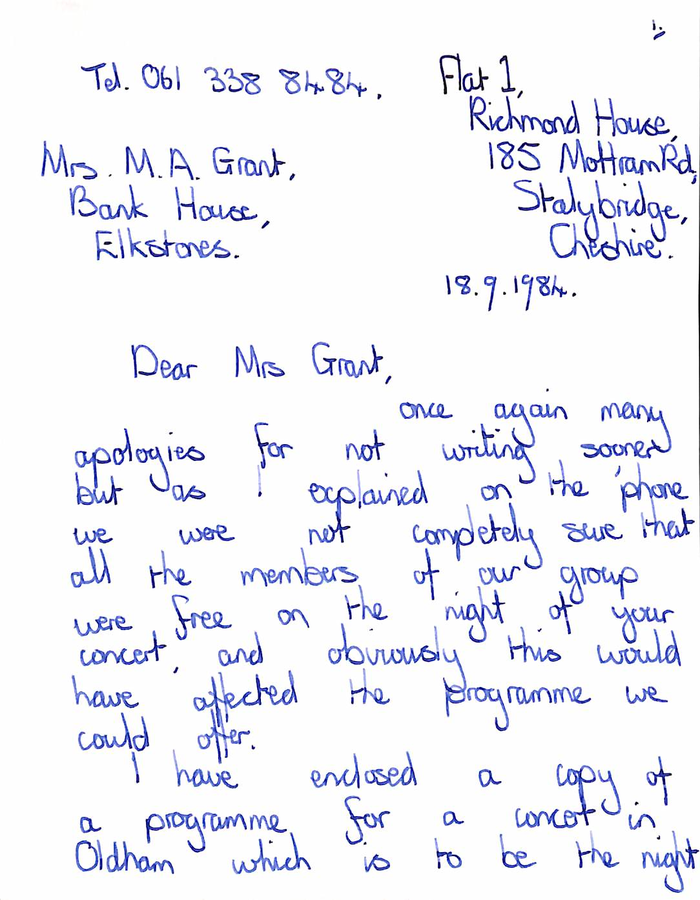 1.
Tel. 061 338 8484.
Flat 1,
Richmond House,
185 Mottram Rd,
Stalybridge,
Cheshire.
Mrs. M.A. Grant,
Bank House,
Elkstones.
18.9.1984.
Dear Mrs Grant,
once again many
apologies for not writing sooner
but as I explained on the 'phone
we were not completely sure that
all the members of our group
were free on the night of your
concert, and obviously this would
have affected the programme we
could offer.
I have enclosed a copy of
a programme for a concert in
Oldham which is to be the night